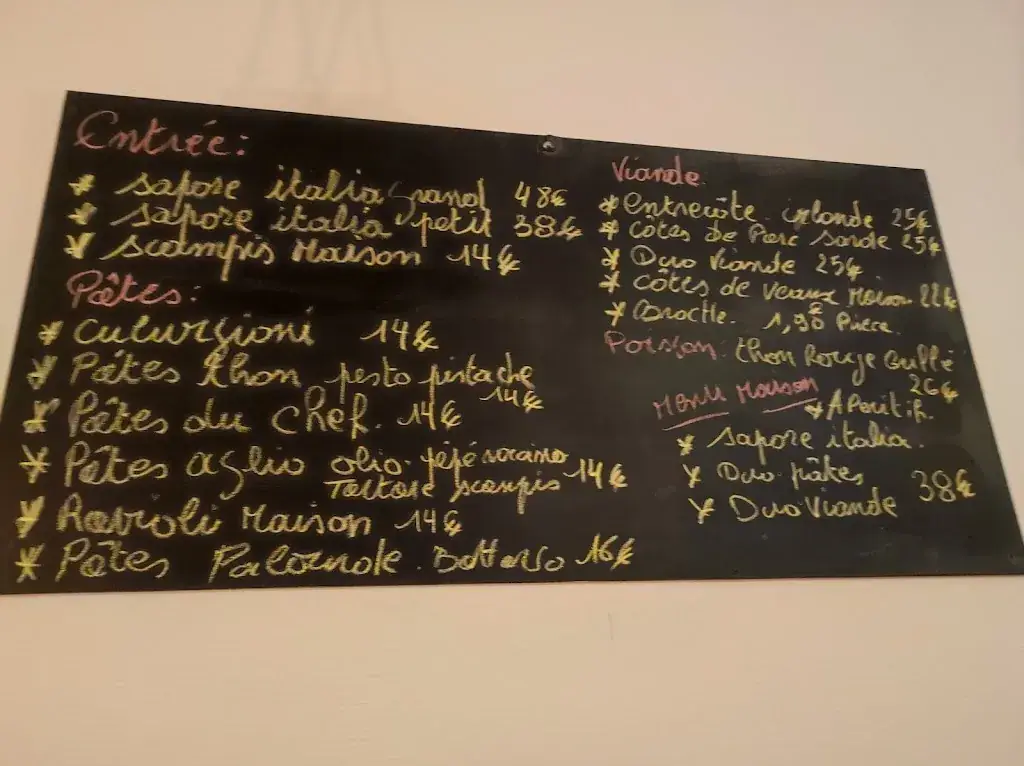 Entrée:
* sapore italia grand 48€
* sapore italia petit 38€
* scampis Maison 14€
Pâtes:
* culurgioni 14€
* Pâtes thon pesto pistache
14€
* Pâtes du chef. 14€
* Pâtes aglio olio
Tartare scampis 14€
* Ravioli Maison 14€
* Pâtes 16€
Viande
* entrecôte irlande 25€
* côtes de Porc sarde 25€
* Duo Viande 25€.
* côtes de veaux Maison 22€
* 1,90 Pièce.
Poisson: thon Rouge Grillé
26€
Menu Maison
* Aperitif.
* sapore italia.
* Duo pâtes
38€
* Duo Viande